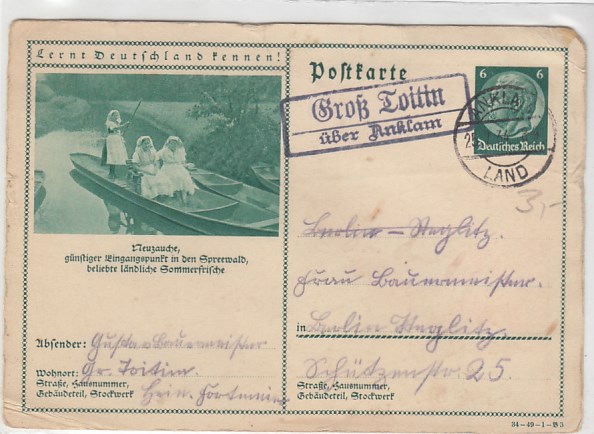 Lernt Deutschland kennen!
Postkarte
6 6
Deutsches Reich
Groß Toitin
über Anklam
ANKLAM
LAND
3,-
Neuzauche,
günstiger Eingangspunkt in den Spreewald,
beliebte ländliche Sommerfrische
Berlin - Steglitz.
Frau Bauermeister.
in Berlin Steglitz
Schützenstr. 25.
Straße, Hausnummer,
Gebäudeteil, Stockwerk
Absender: Bauermeister
Wohnort: Gr. Toitin.
Straße, Hausnummer,
Gebäudeteil, Stockwerk
34-49-1-B3